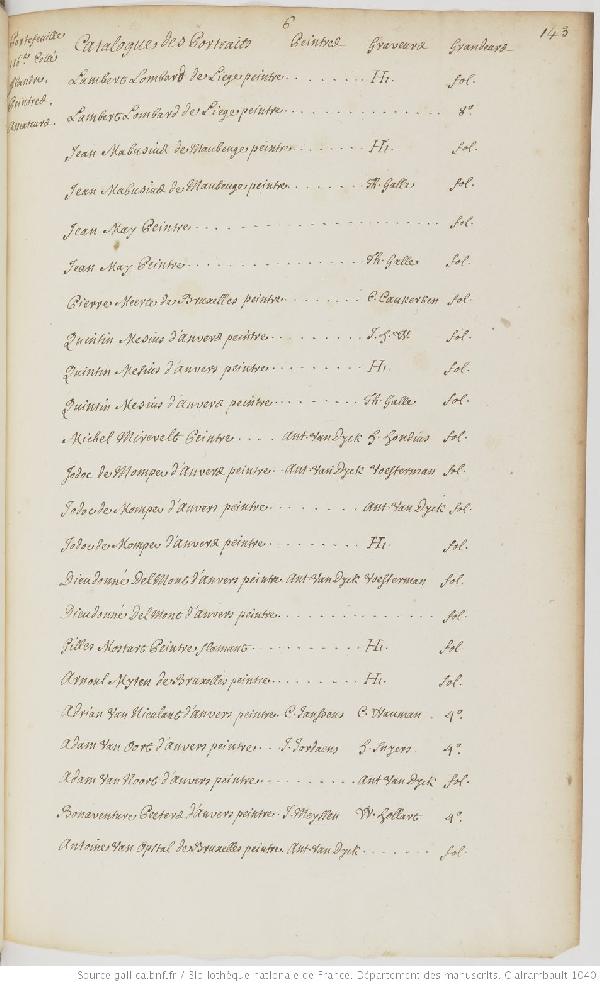 6
143
Portefeuille
Flandre.
Peintres
Amateurs.
Catalogue des Portraits Peintres Graveurs Grandeurs
Lambert Lombard de Liege peintre ........ H. fol.
Lambert Lombard de Liege peintre ........ 8°.
Jean Mabusius de Maubeuge peintre ........ H. fol.
Jean Mabusius de Maubeuge peintre ........ Th. Galle fol.
Jean May Peintre ........ fol.
Jean May Peintre ........ Th. Galle fol.
Pierre Meerte de Bruxelles peintre ...... C. Caukercen fol.
Quintin Mesius d'Anvers peintre ........ fol.
Quintin Mesius d'anvers peintre ........ H. fol.
Quintin Mesius d'anvers peintre ........ Th. Galle fol.
Michel Mirevelt Peintre .... Ant. Van Dyck h. hondius fol.
Jodoc de Mompe d'Anvers peintre .. Ant. Van Dyck Voesterman fol.
Jodoc de Mompe d'Anvers peintre ........ Ant. Van Dyck fol.
Jodoc de Mompe d'Anvers peintre ........ H. fol.
Dieudonné Del Mont d'Anvers peintre Ant. Van Dyck Voesterman fol.
Dieudonné Del Mont d'anvers peintre ........ fol.
Gilles Mostart Peintre flamant ........ H. fol.
Arnoul Myten de Bruxelles peintre ........ H. fol.
Adrian Van Nieulant d'anvers peintre C. Janssens C. Wauman . 4°.
Adam Van Oort d'anvers peintre ... J. Jordaens h. Snyers . 4°.
Adam Van Noort d'Anvers peintre ........ Ant. Van Dyck fol.
Bonaventure Peeters d'Anvers peintre . J. Meyssen W. hollart 4°.
Antoine Van Opstal de Bruxelles peintre Ant. Van Dyck ...... fol.
Source gallica.bnf.fr / Bibliothèque nationale de France. Département des manuscrits. Clairambault 1040